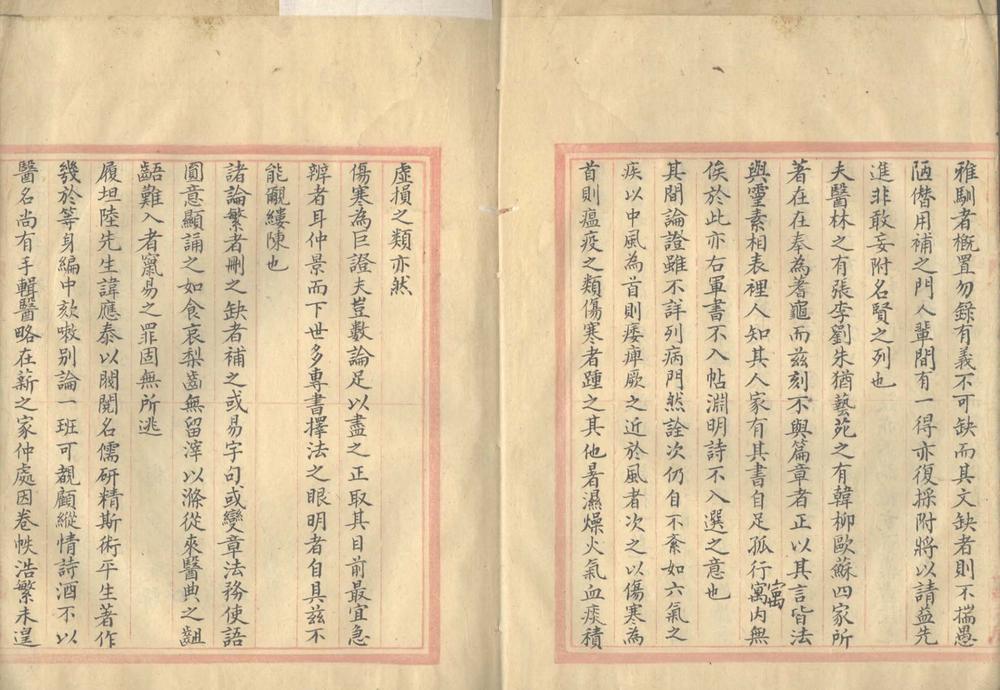 雅馴者概置勿錄有義不可缺而其文缺者則不揣愚
陋僭用補之門人輩間有一得亦復採附將以請益先
進非敢妄附名賢之列也
夫醫林之有張李劉朱猶藝苑之有韓柳歐蘇四家所
著在在奉為蓍龜而兹刻不與篇章者正以其言皆法
與靈素相表裡人知其人家有其書自足孤行寓內無
寓
俟於此亦右軍書不入帖淵明詩不入選之意也
其間論證雖不詳列病門然詮次仍自不紊如六氣之
疾以中風為首則痿痺厥之近於風者次之以傷寒為
首則瘟疫之類傷寒者踵之其他暑濕燥火氣血痰積
虛損之類亦然
傷寒為巨證夫豈數論足以盡之正取其目前最宜急
辨者耳仲景而下世多專書擇法之眼明者自具兹不
能覼縷陳也
諸論繁者刪之缺者補之或易字句或變章法務使語
圓意顯誦之如食哀梨齒無留滓以滌從來醫典之齟
齬難入者竄易之罪固無所逃
履坦陸先生諱應泰以閥閱名儒研精斯術平生著作
幾於等身編中欬嗽別論一班可覩顧縱情詩酒不以
醫名尚有手輯醫略在薪之家仲處因卷帙浩繁未遑